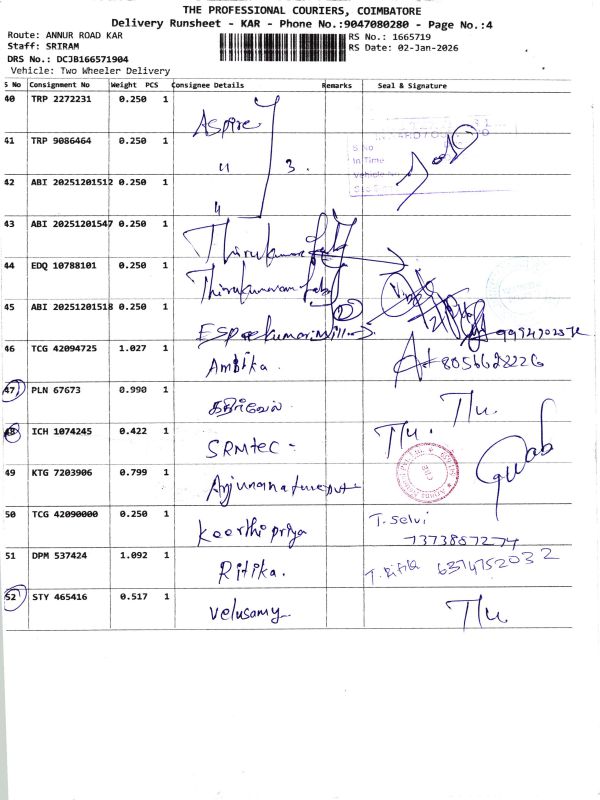 THE PROFESSIONAL COURIERS, COIMBATORE
Delivery Runsheet - KAR - Phone No.:9047080280 - Page No.:4
Route: ANNUR ROAD KAR
RS No.: 1665719
Staff: SRIRAM
RS Date: 02-Jan-2026
DRS No.: DCJB166571904
Vehicle: Two Wheeler Delivery
S No Consignment No Weight PCS Consignee Details Remarks Seal & Signature
40 TRP 2272231 0.250 1 Aspire
41 TRP 9086464 0.250 1 " 3.
In Time
42 ABI 20251201512 0.250 1 "
43 ABI 20251201547 0.250 1
44 EDQ 10788101 0.250 1
45 ABI 20251201518 0.250 1
46 TCG 42094725 1.027 1 Ambika.
47 PLN 67673 0.990 1 கதிர்வேல். TLu.
48 ICH 1074245 0.422 1 SRMTEC - TLu.
49 KTG 7203906 0.799 1
50 TCG 42090000 0.250 1 Keerthi priya T. Selvi
7373887274
51 DPM 537424 1.092 1 Ritika. T. Ritika 6374752032
52 STY 465416 0.517 1 Velusamy TLu